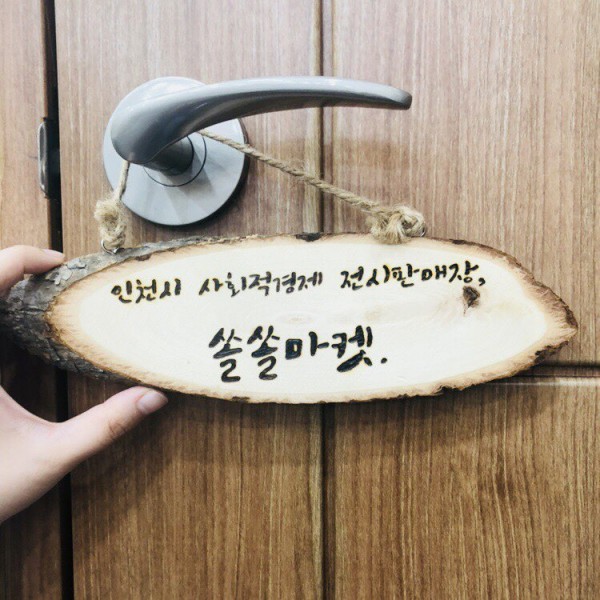 인천시 사회적경제 전시판매장,
쏠쏠마켓.